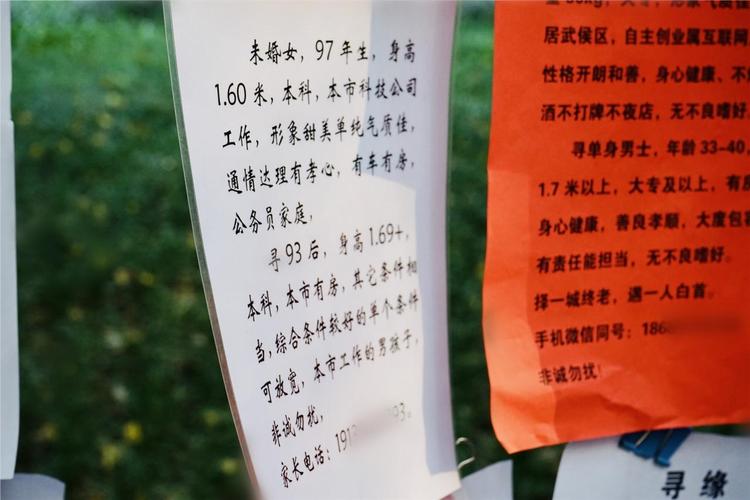 未婚女，97年生，身高
1.60米，本科，本市科技公司
工作，形象甜美单纯气质佳，
通情达理有孝心，有车有房，
公务员家庭，
寻93后，身高1.69+，
本科，本市有房，其它条件相
当，综合条件较好的单个条件
可放宽，本市工作的男孩子，
非诚勿扰，
家长电话：191 93。
居武侯区，自主创业属互联网
性格开朗和善，身心健康、不
酒不打牌不夜店，无不良嗜好
寻单身男士，年龄33-40，
1.7米以上，大专及以上，有
身心健康，善良孝顺，大度包
有责任能担当，无不良嗜好。
择一城终老，遇一人白首。
手机微信同号：186
非诚勿扰！
寻缘